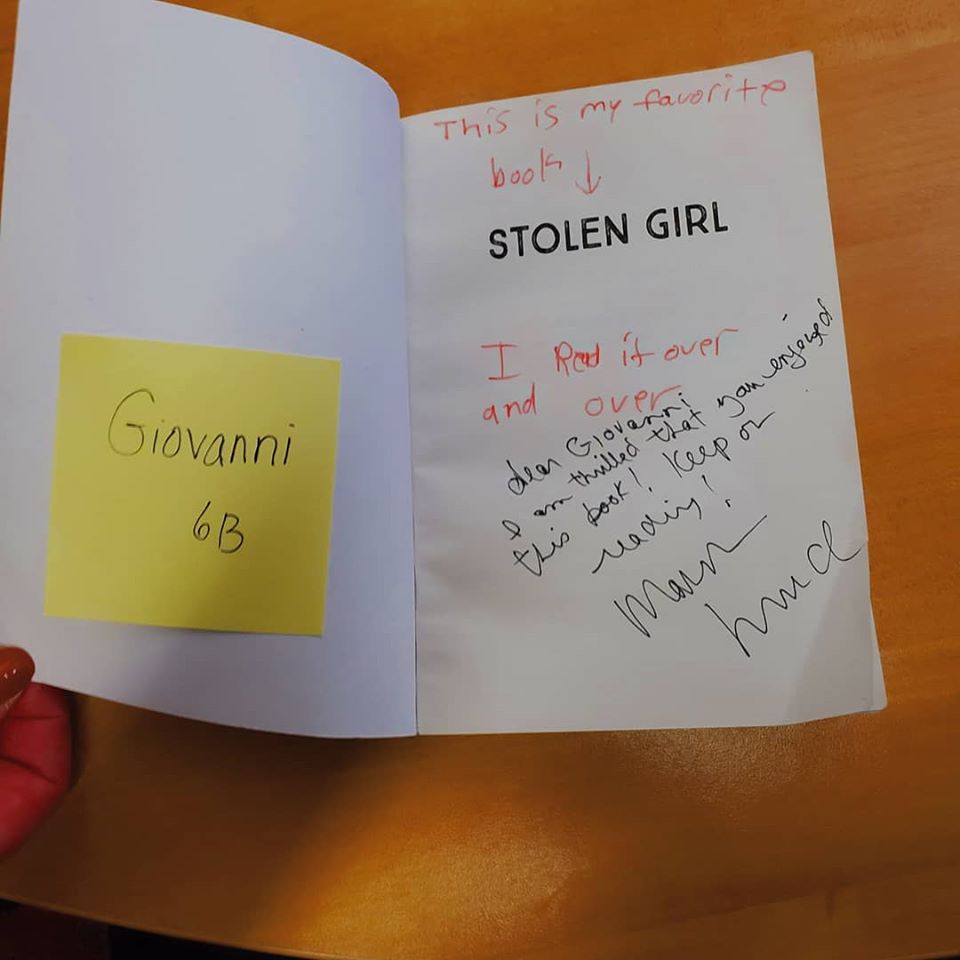 Giovanni
6B
This is my favorite
book ↓
STOLEN GIRL
I Read it over
and over
dear Giovanni
I am thrilled that you enjoyed
this book! Keep on
reading!